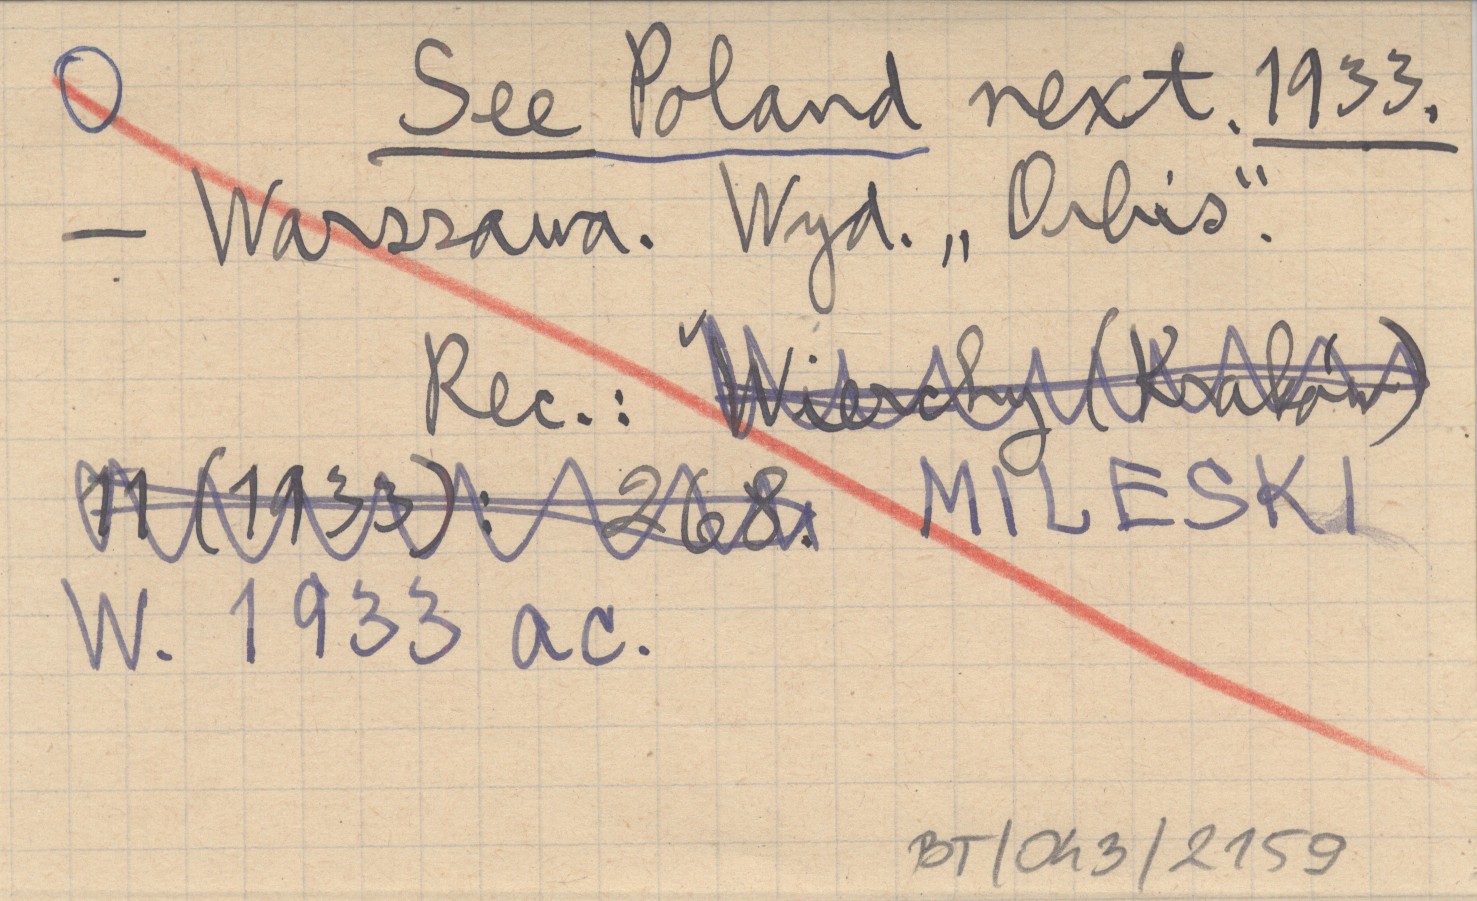 O See Poland next. 1933.
— Warszawa. Wyd. „Orbis“.
Rec.: Wierchy (Kraków)
11 (1933): 268. MILESKI
W. 1933 ac.
BT/043/2159